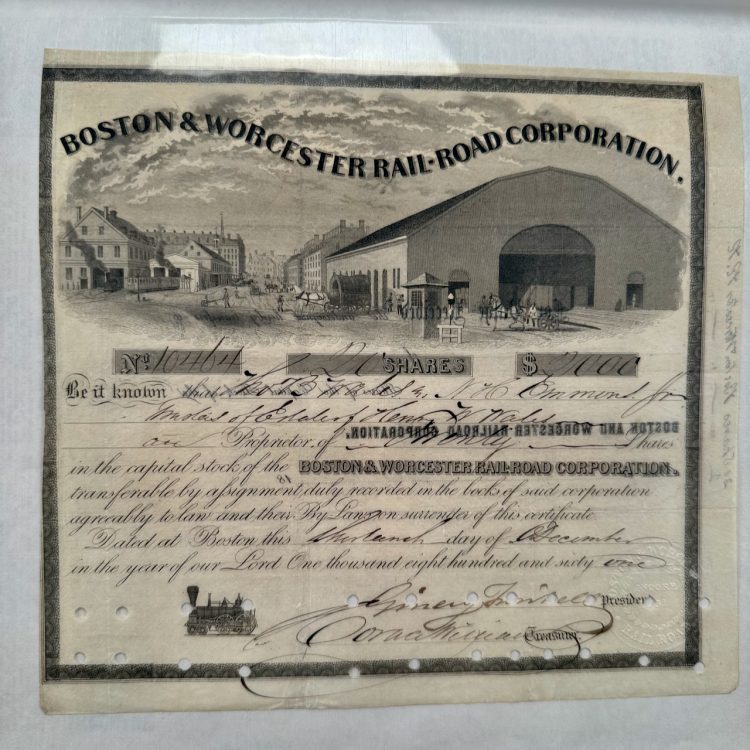 BOSTON & WORCESTER RAIL-ROAD CORPORATION.
No. 10464 20 SHARES $ 2000
Be it known that Tho. B. Wales & N. H. Emmons Jr
of Estate of Henry W. Wales
Proprietor of Twenty Shares
BOSTON AND WORCESTER RAIL-ROAD CORPORATION.
in the capital stock of the BOSTON & WORCESTER RAIL-ROAD CORPORATION.
transferable by assignment duly recorded in the books of said corporation
agreeably to law and their By Laws on surrender of this certificate.
Dated at Boston this day of December
in the year of our Lord One thousand eight hundred and sixty one
President
Treasurer.